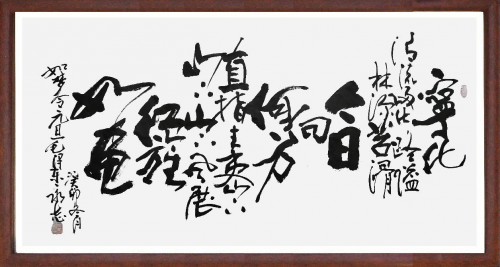 寧化
清流歸化路隘
林深苔滑
今日
向
何方
直指武夷
山下山下风展
红旗
如画
如梦令元旦毛泽东
癸卯冬月